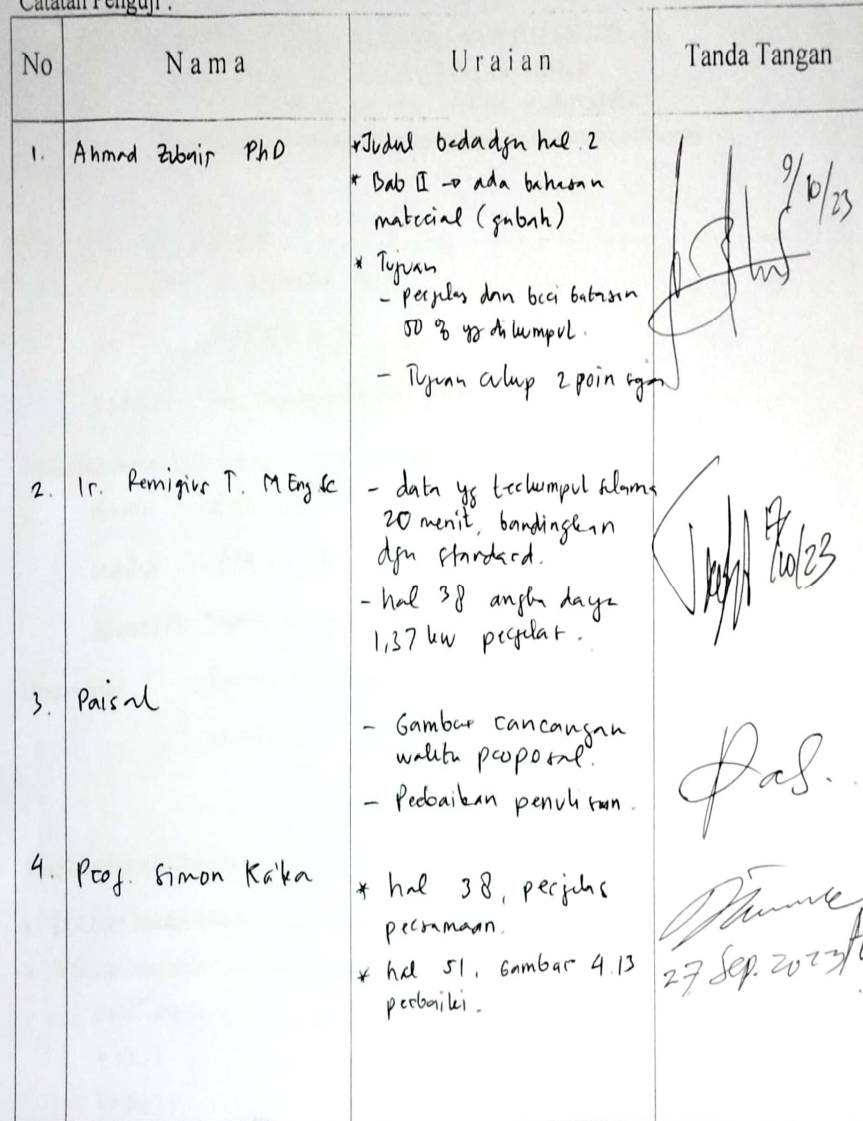 Catatan Penguji :
No Nama Uraian Tanda Tangan
1. Ahmad Zubair PhD
* Judul beda dgn hal. 2
* Bab II → ada bahasan
material (gubah)
* Tujuan
- perjelas dan beri batasan
50 % yg di kumpul.
- Tujuan cukup 2 poin
9/10/23
2. Ir. Remigius T. MEng.Sc
- data yg terkumpul selama
20 menit, bandingkan
dgn standard.
- hal 38 angka daya
1,37 kw perjelas.
17/10/23
3. Paisal
- Gambar rancangan
waktu proposal.
- Perbaikan penulisan.
4. Prof. Simon Ka'ka
* hal 38, perjelas
persamaan.
* hal 51, Gambar 4.13
perbaiki.
27 Sep. 2023